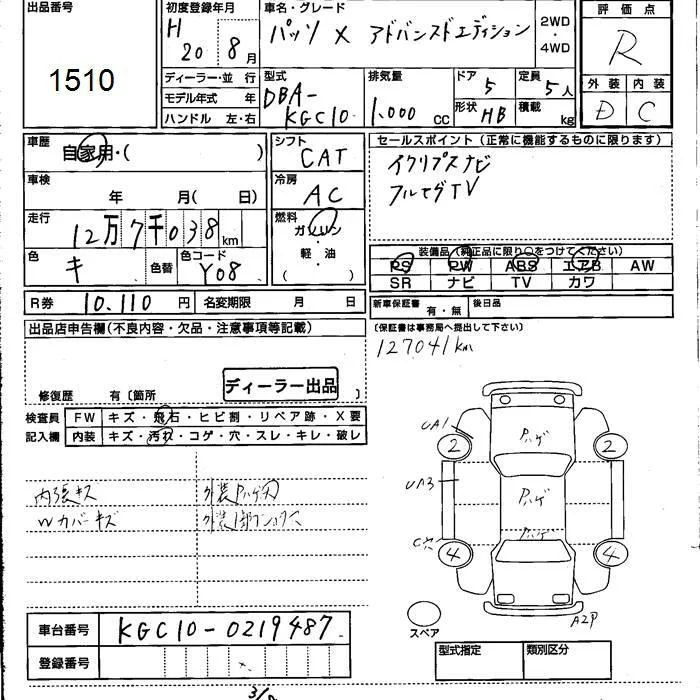 出品番号
1510
初度登録年月
H 20 8月
車名・グレード
パッソ X アドバンスドエディション
2WD・4WD
評価点
R
ディーラー・並行
モデル年式 年
ハンドル 左・右
型式
DBA-KGC10
排気量
1,000 cc
ドア 5
形状 HB
定員 5人
積載 kg
外装 内装
D C
車歴
自家用・( )
車検
年 月( 日)
走行
12万7千038km
色 キ
色替
色コード Y08
シフト
CAT
冷房
AC
燃料
ガソリン
・軽油
( )
セールスポイント(正常に機能するものに限ります)
イクリプスナビ
フルセグTV
装備品(純正品に限り○をつけてください)
PS PW ABS エアB AW
SR ナビ TV カワ
R券 10.110円 名変期限 月 日
新車保証書 有・無 後日品
(保証書は事務局へ提出して下さい)
出品店申告欄(不良内容・欠品・注意事項等記載)
127041km
修復歴 有〔箇所 〕
ディーラー出品
検査員記入欄
FW キズ・飛石・ヒビ割・リペア跡・X要
内装 キズ・汚れ・コゲ・穴・スレ・キレ・破レ
内張キズ
外装Pハゲ大
Wカバーキズ
UA1
2
Pハゲ
2
UA3
Pハゲ
C穴
4
Pハゲ
4
スペア
A2P
車台番号 KGC10-0219487
登録番号
型式指定 類別区分